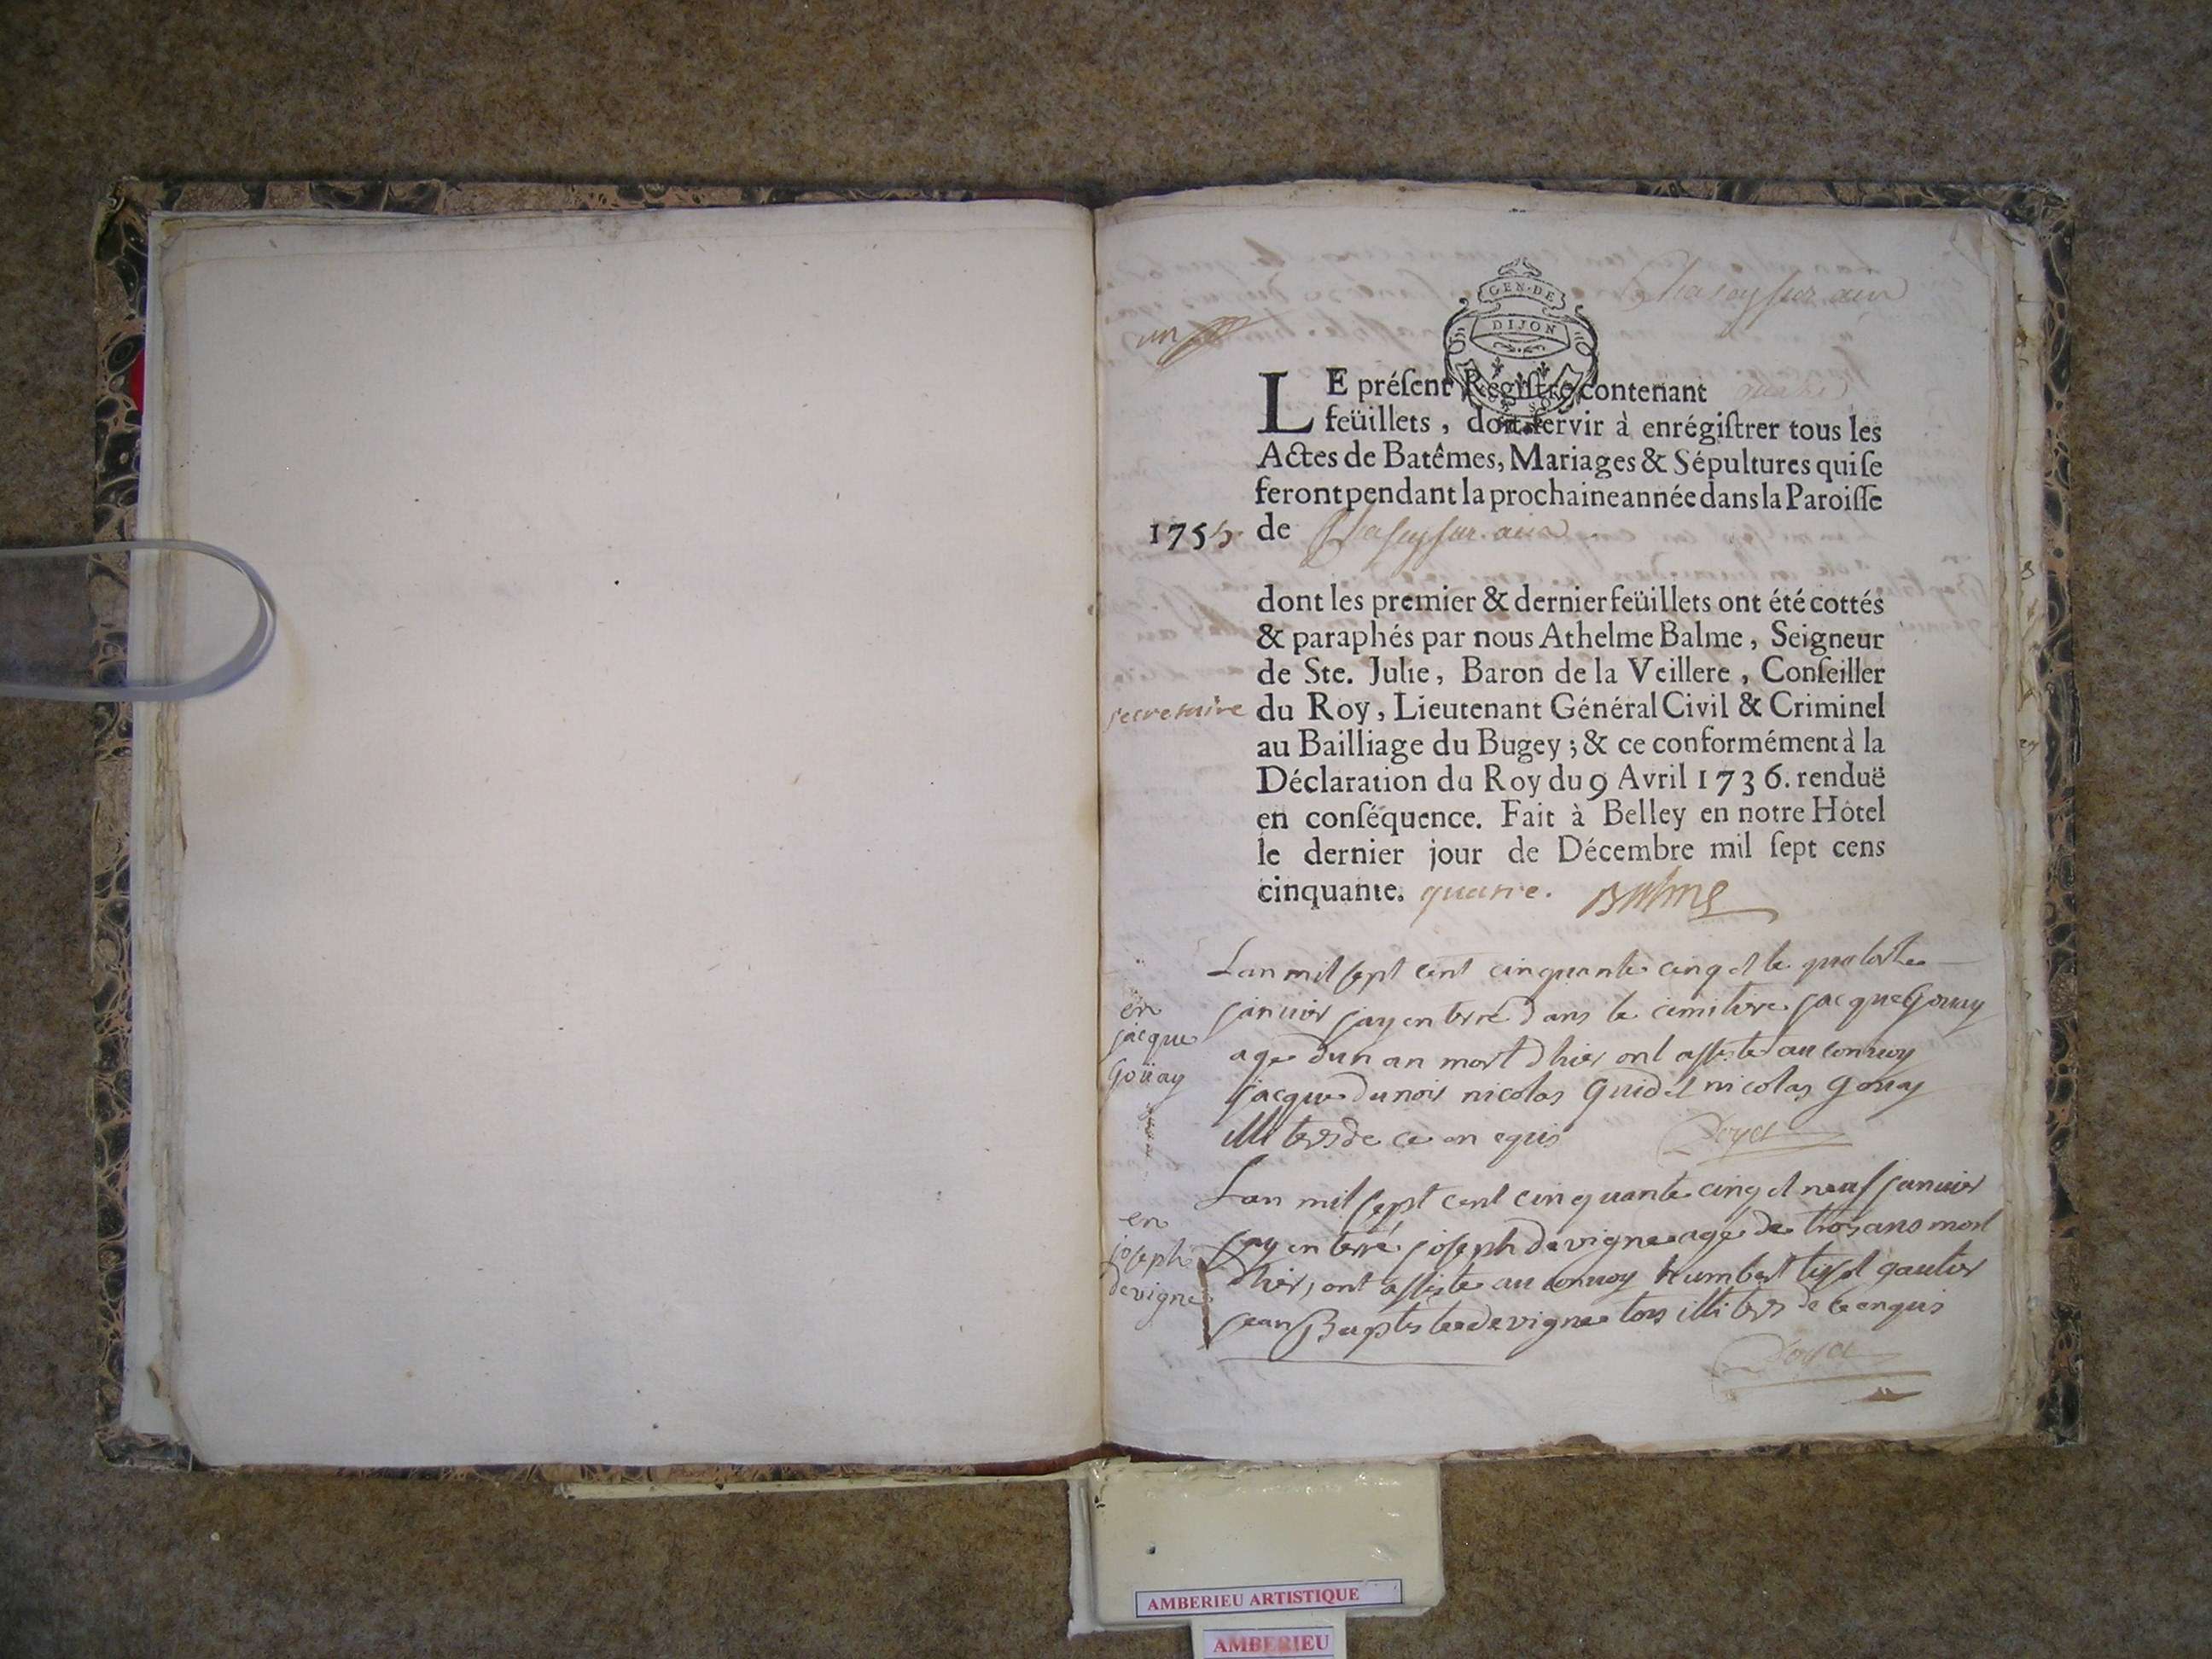 Chasey sur ain
GEN·DE
DIJON
un
LE préſent Regiſtre contenant quatre
feüillets, doit ſervir à enrégiſtrer tous les
Actes de Batêmes, Mariages & Sépultures qui ſe
feront pendant la prochaine année dans la Paroiſſe
1755. de Chasey sur ain
dont les premier & dernier feüillets ont été cottés
& paraphés par nous Athelme Balme, Seigneur
de Ste. Julie, Baron de la Veillere, Conſeiller
secretaire du Roy, Lieutenant Général Civil & Criminel
au Bailliage du Bugey; & ce conformément à la
Déclaration du Roy du 9 Avril 1736. renduë
en conſéquence. Fait à Belley en notre Hôtel
le dernier jour de Décembre mil ſept cens
cinquante. quatre. Balme
Lan mil sept cent cinquante cinq et le quatorze
en
jacque
Goüay
janvier jay enterré dans le cimitiere jacque Gouay
age dun an mort dhier ont assiste au convoy
jacque dunoir nicolas Guid et nicolas Gouay
illiters de ce enquis
Doyet
Lan mil sept cent cinquante cinq et neuf janvier
en
joseph
devigne
jay enterré joseph devigne agé de trois ans mort
dhier, ont assiste au convoy humbert gautier
jean Baptiste devigne tous illiters de ce enquis
Doyet
AMBERIEU ARTISTIQUE
AMBERIEU